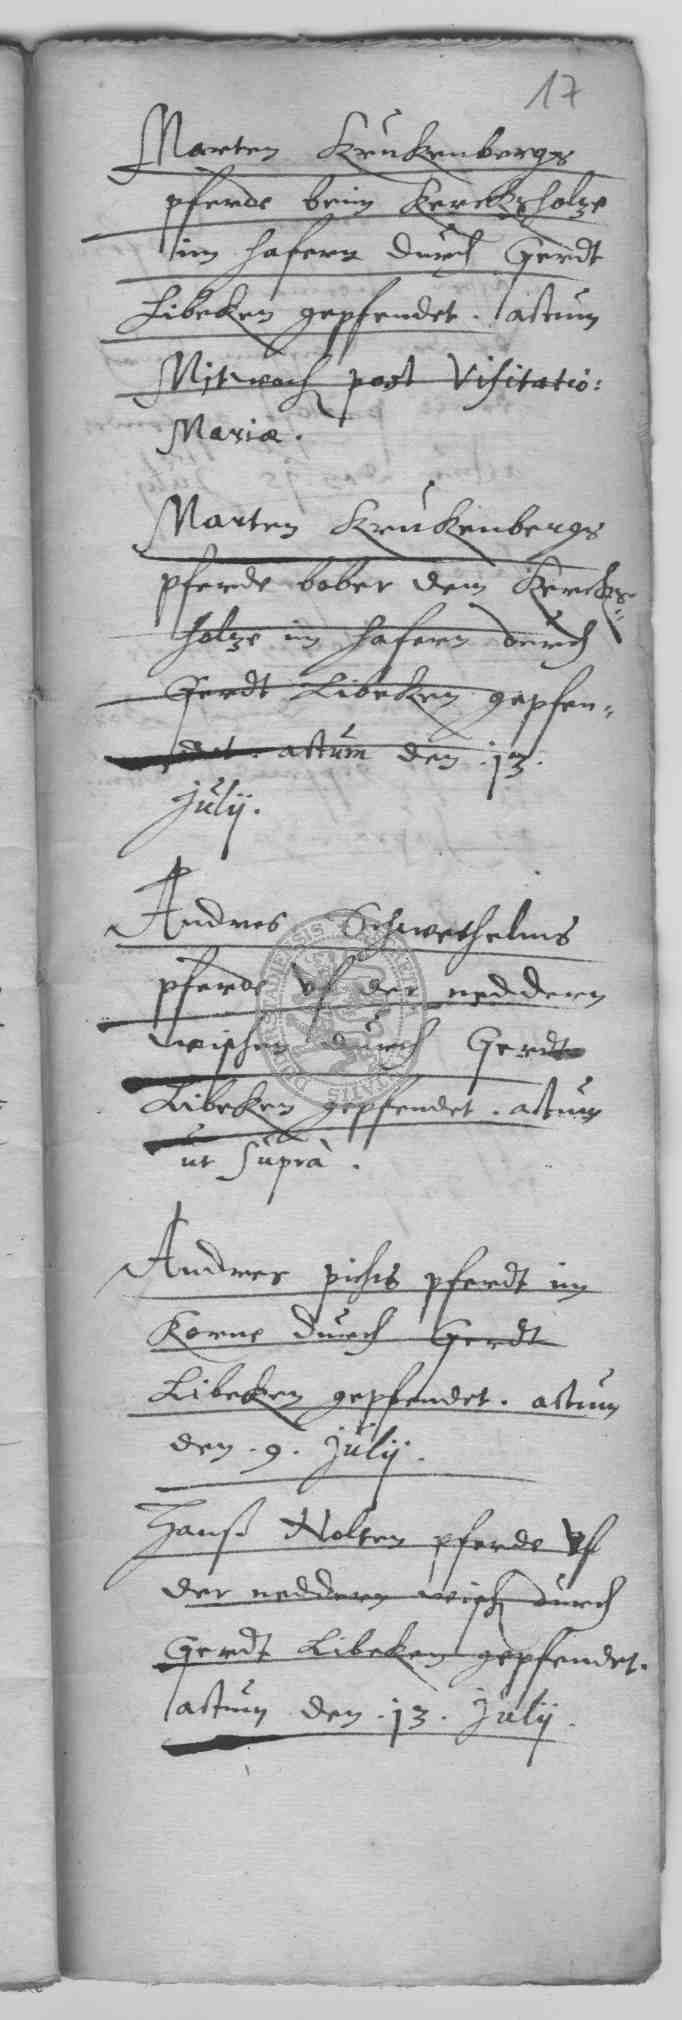 17
Marten Krukenbergs
pferde beim Kerckholze
im hafern durch Gerdt
Libeken gepfendet. actum
Mitwoch post Visitatio:
Mariæ.
Marten Krukenbergs
pferde bober dem Kercks=
holze im hafern durch
Gerdt Libeken gepfen=
det. actum den .13.
Julij.
Andres Schwethelms
pferde vf der neddern
wischen durch Gerdt
Libeken gepfendet. actum
ut suprà.
Andres pichs pferdt im
Korne durch Gerdt
Libeken gepfendet. actum
den .9. Julij.
Hanß Nolten pferde vf
der neddern wisch durch
Gerdt Libeken gepfendet.
actum den .13. Julij.